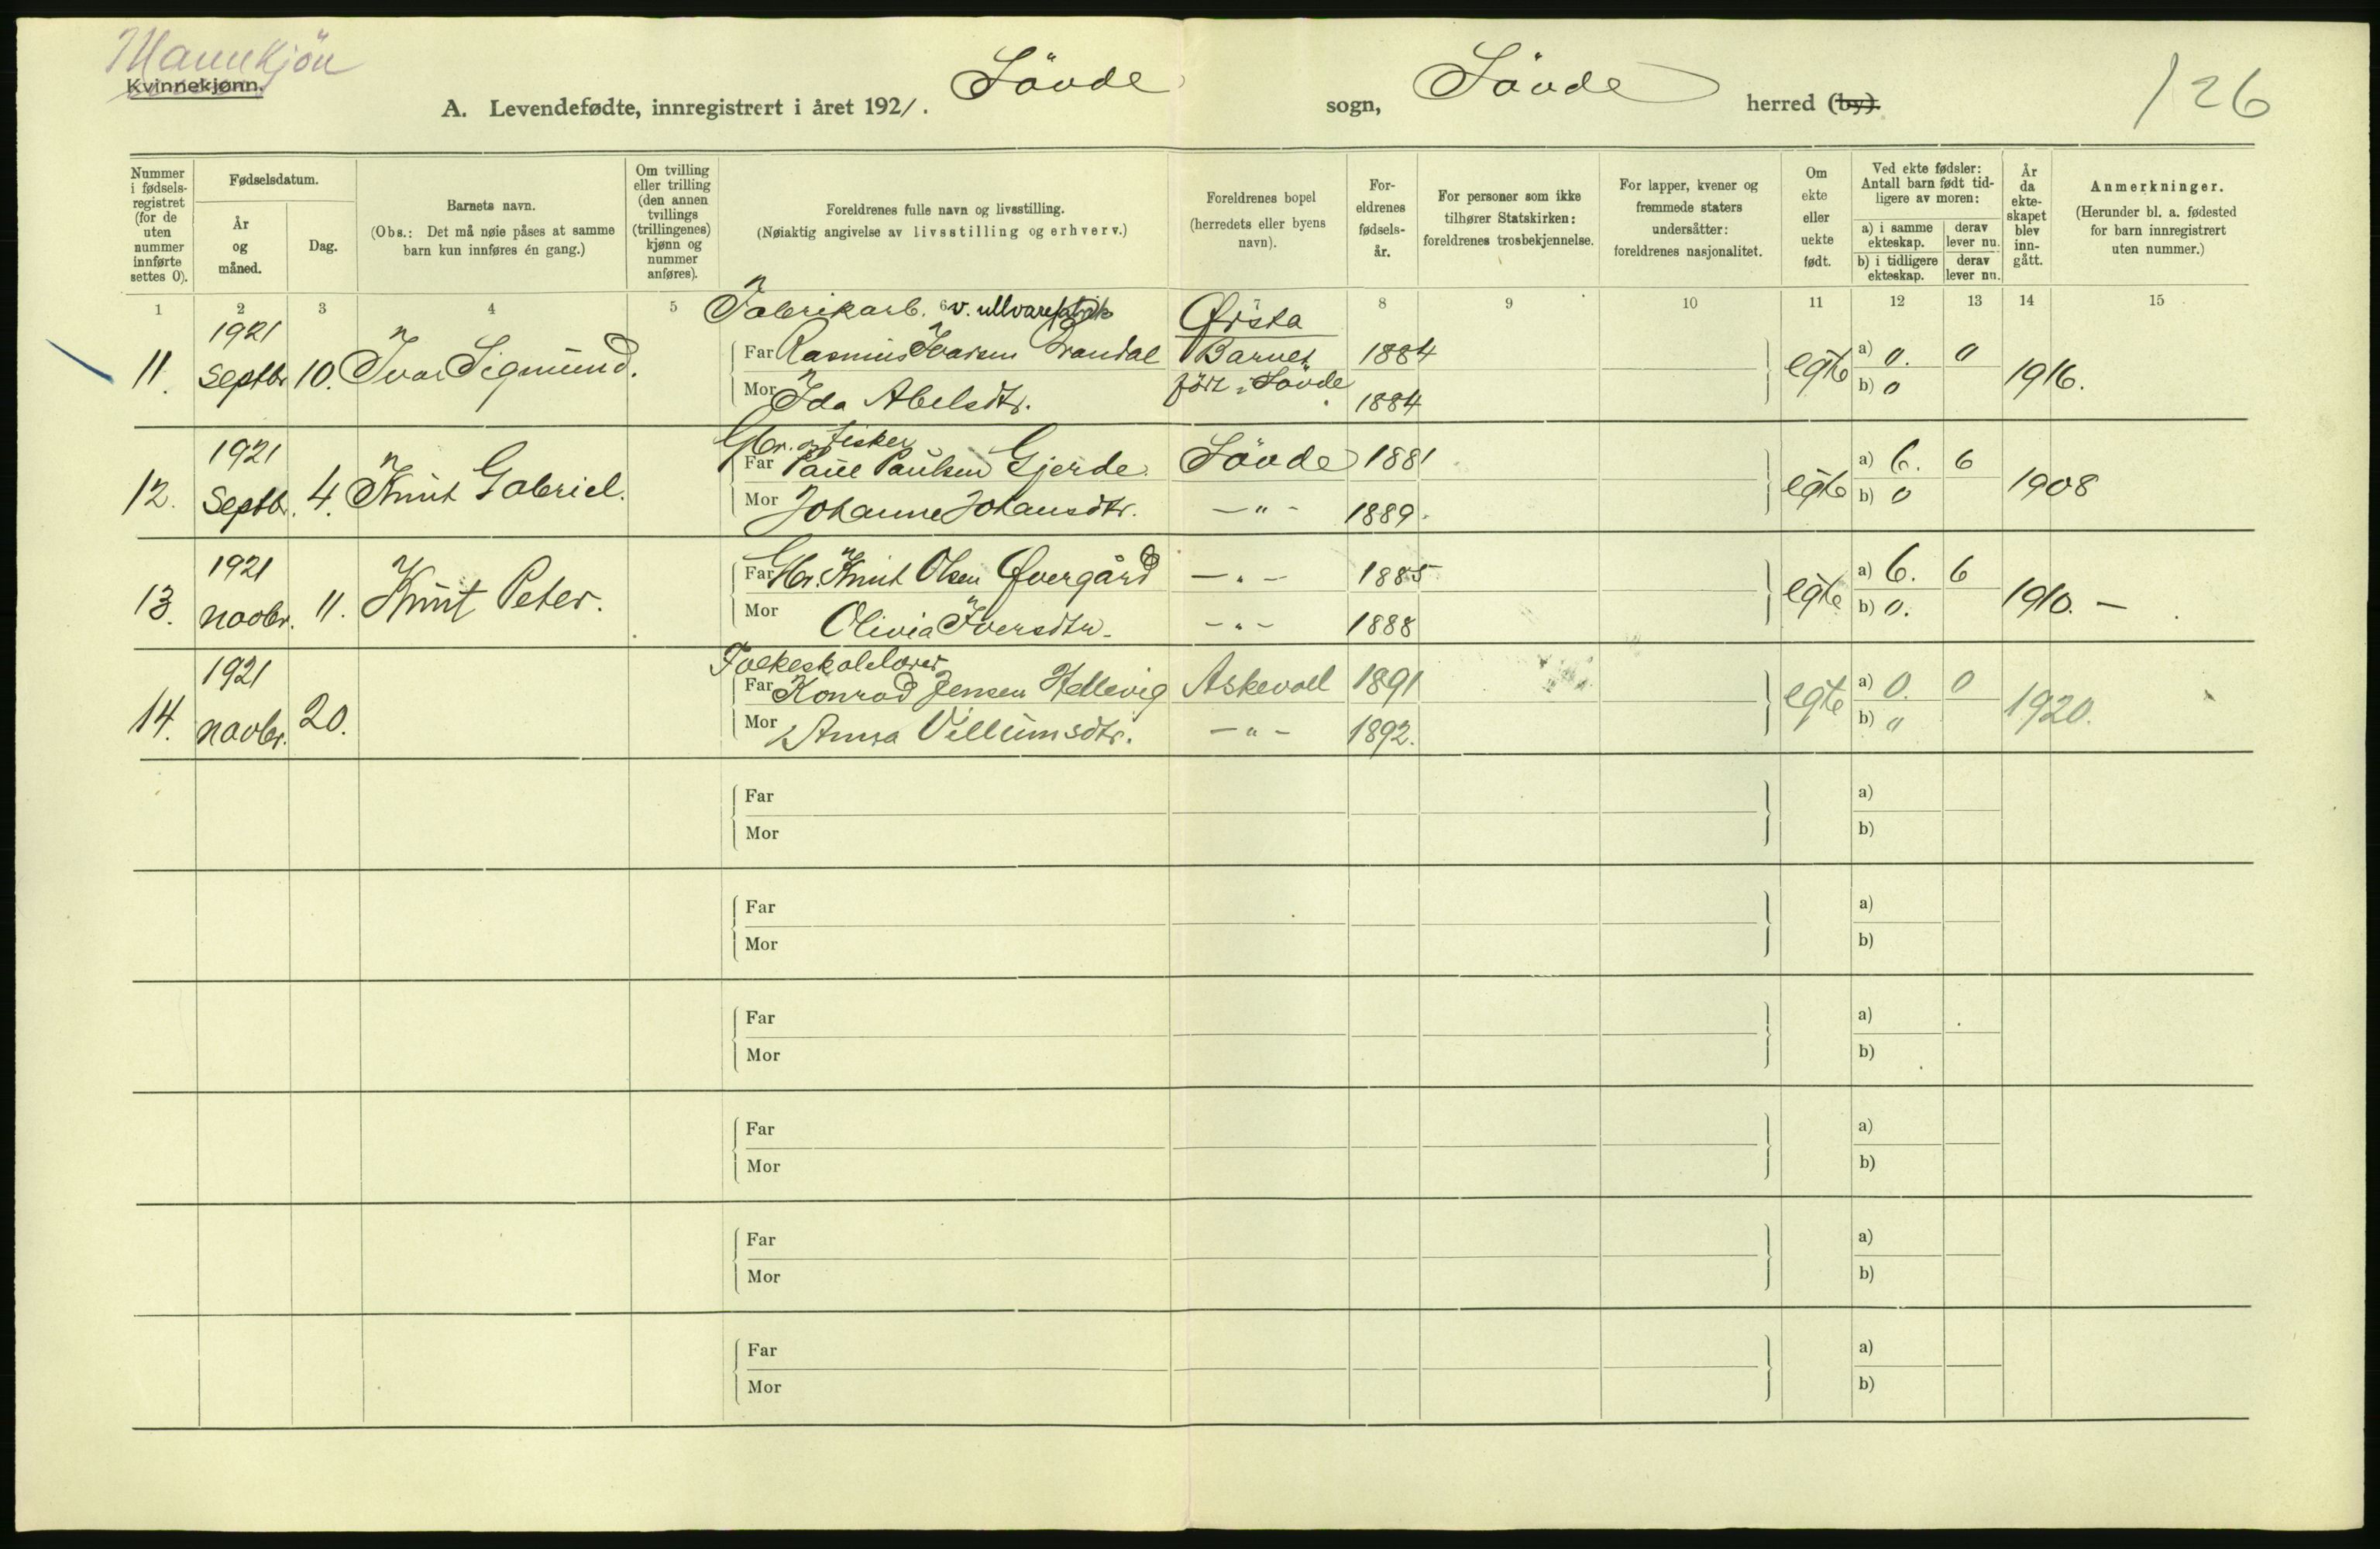 Mannkjön
Kvinnekjønn.
A. Levendefødte, innregistrert i året 1921. Sövde sogn, Sövde herred (by).
126
Nummer i fødsels-registret (for de uten nummer innførte settes 0).
Fødselsdatum.
År og måned.
Dag.
Barnets navn.
(Obs.: Det må nøie påses at samme barn kun innføres én gang.)
Om tvilling eller trilling (den annen tvillings (trillingenes) kjønn og nummer anføres).
Foreldrenes fulle navn og livsstilling.
(Nøiaktig angivelse av livsstilling og erhverv.)
Foreldrenes bopel (herredets eller byens navn).
For-eldrenes fødsels-år.
For personer som ikke tilhører Statskirken: foreldrenes trosbekjennelse.
For lapper, kvener og fremmede staters undersåtter: foreldrenes nasjonalitet.
Om ekte eller uekte født.
Ved ekte fødsler: Antall barn født tid-ligere av moren:
a) i samme ekteskap.
derav lever nu.
b) i tidligere ekteskap.
derav lever nu.
År da ekte-skapet blev inn-gått.
Anmerkninger.
(Herunder bl. a. fødested for barn innregistrert uten nummer.)
1 2 3 4 5 6 7 8 9 10 11 12 13 14 15
Fabrikarb. v. ullvarefabrik Ørsta
11. 1921 Septbr 10. Ivar Sigmund.
Far Rasmus Ivarsen Brandal Barnet 1884
Mor Ida Abelsdtr. födt i Sövde 1884
egte a) 0. 0 b) 0 1916.
Gbr. og fisker
12. 1921 Septbr. 4. Knut Gabriel.
Far Paul Paulsen Gjerde. Sövde 1881
Mor Johanne Johansdtr. — " — 1889.
egte a) 6. 6 b) 0 1908
13. 1921 Novbr. 11. Knut Peter.
Far Gbr. Knut Olsen Øvergård — " — 1885
Mor Olivia Iversdtr. — " — 1888
egte a) 6. 6 b) 0. 1910. —
Folkeskolelærer
14. 1921 Novbr. 20.
Far Konrad Jensen Hellevig Askevoll 1891
Mor Anna Villumsdtr. — " — 1892.
egte a) 0. 0 b) " 1920.
Far a)
Mor b)
Far a)
Mor b)
Far a)
Mor b)
Far a)
Mor b)
Far a)
Mor b)
Far a)
Mor b)